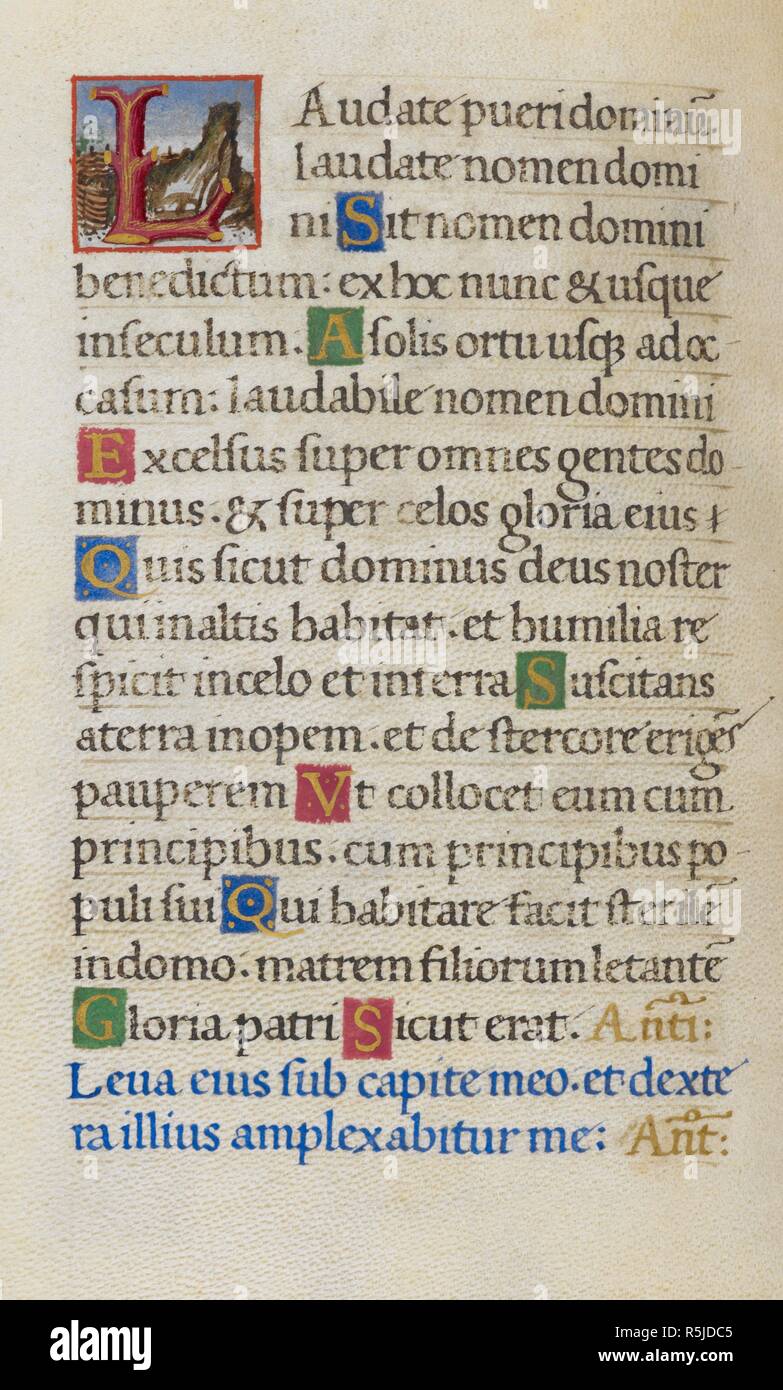 LAudate pueri dominū.
laudate nomen domi
ni Sit nomen domini
benedictum: ex hoc nunc & uſque
inſeculum. A ſolis ortu uſqꝫ ad oc
caſum: laudabile nomen domini
Excelſus ſuper omnes gentes do
minus. & ſuper celos gloria eius
Quis ſicut dominus deus noſter
qui inaltis habitat. et humilia re
ſpicit incelo et interra Suſcitans
aterra inopem. et de ſtercore erigēſ
pauperem Vt collocet eum cum
principibus. cum principibus po
puli ſui Qui habitare facit ſterilē
indomo. matrem filiorum letantē
Gloria patri Sicut erat. Antī:
Leua eius ſub capite meo. et dexte
ra illius amplexabitur me: Ant̄:
alamy
Image ID: R5JDC5
www.alamy.com